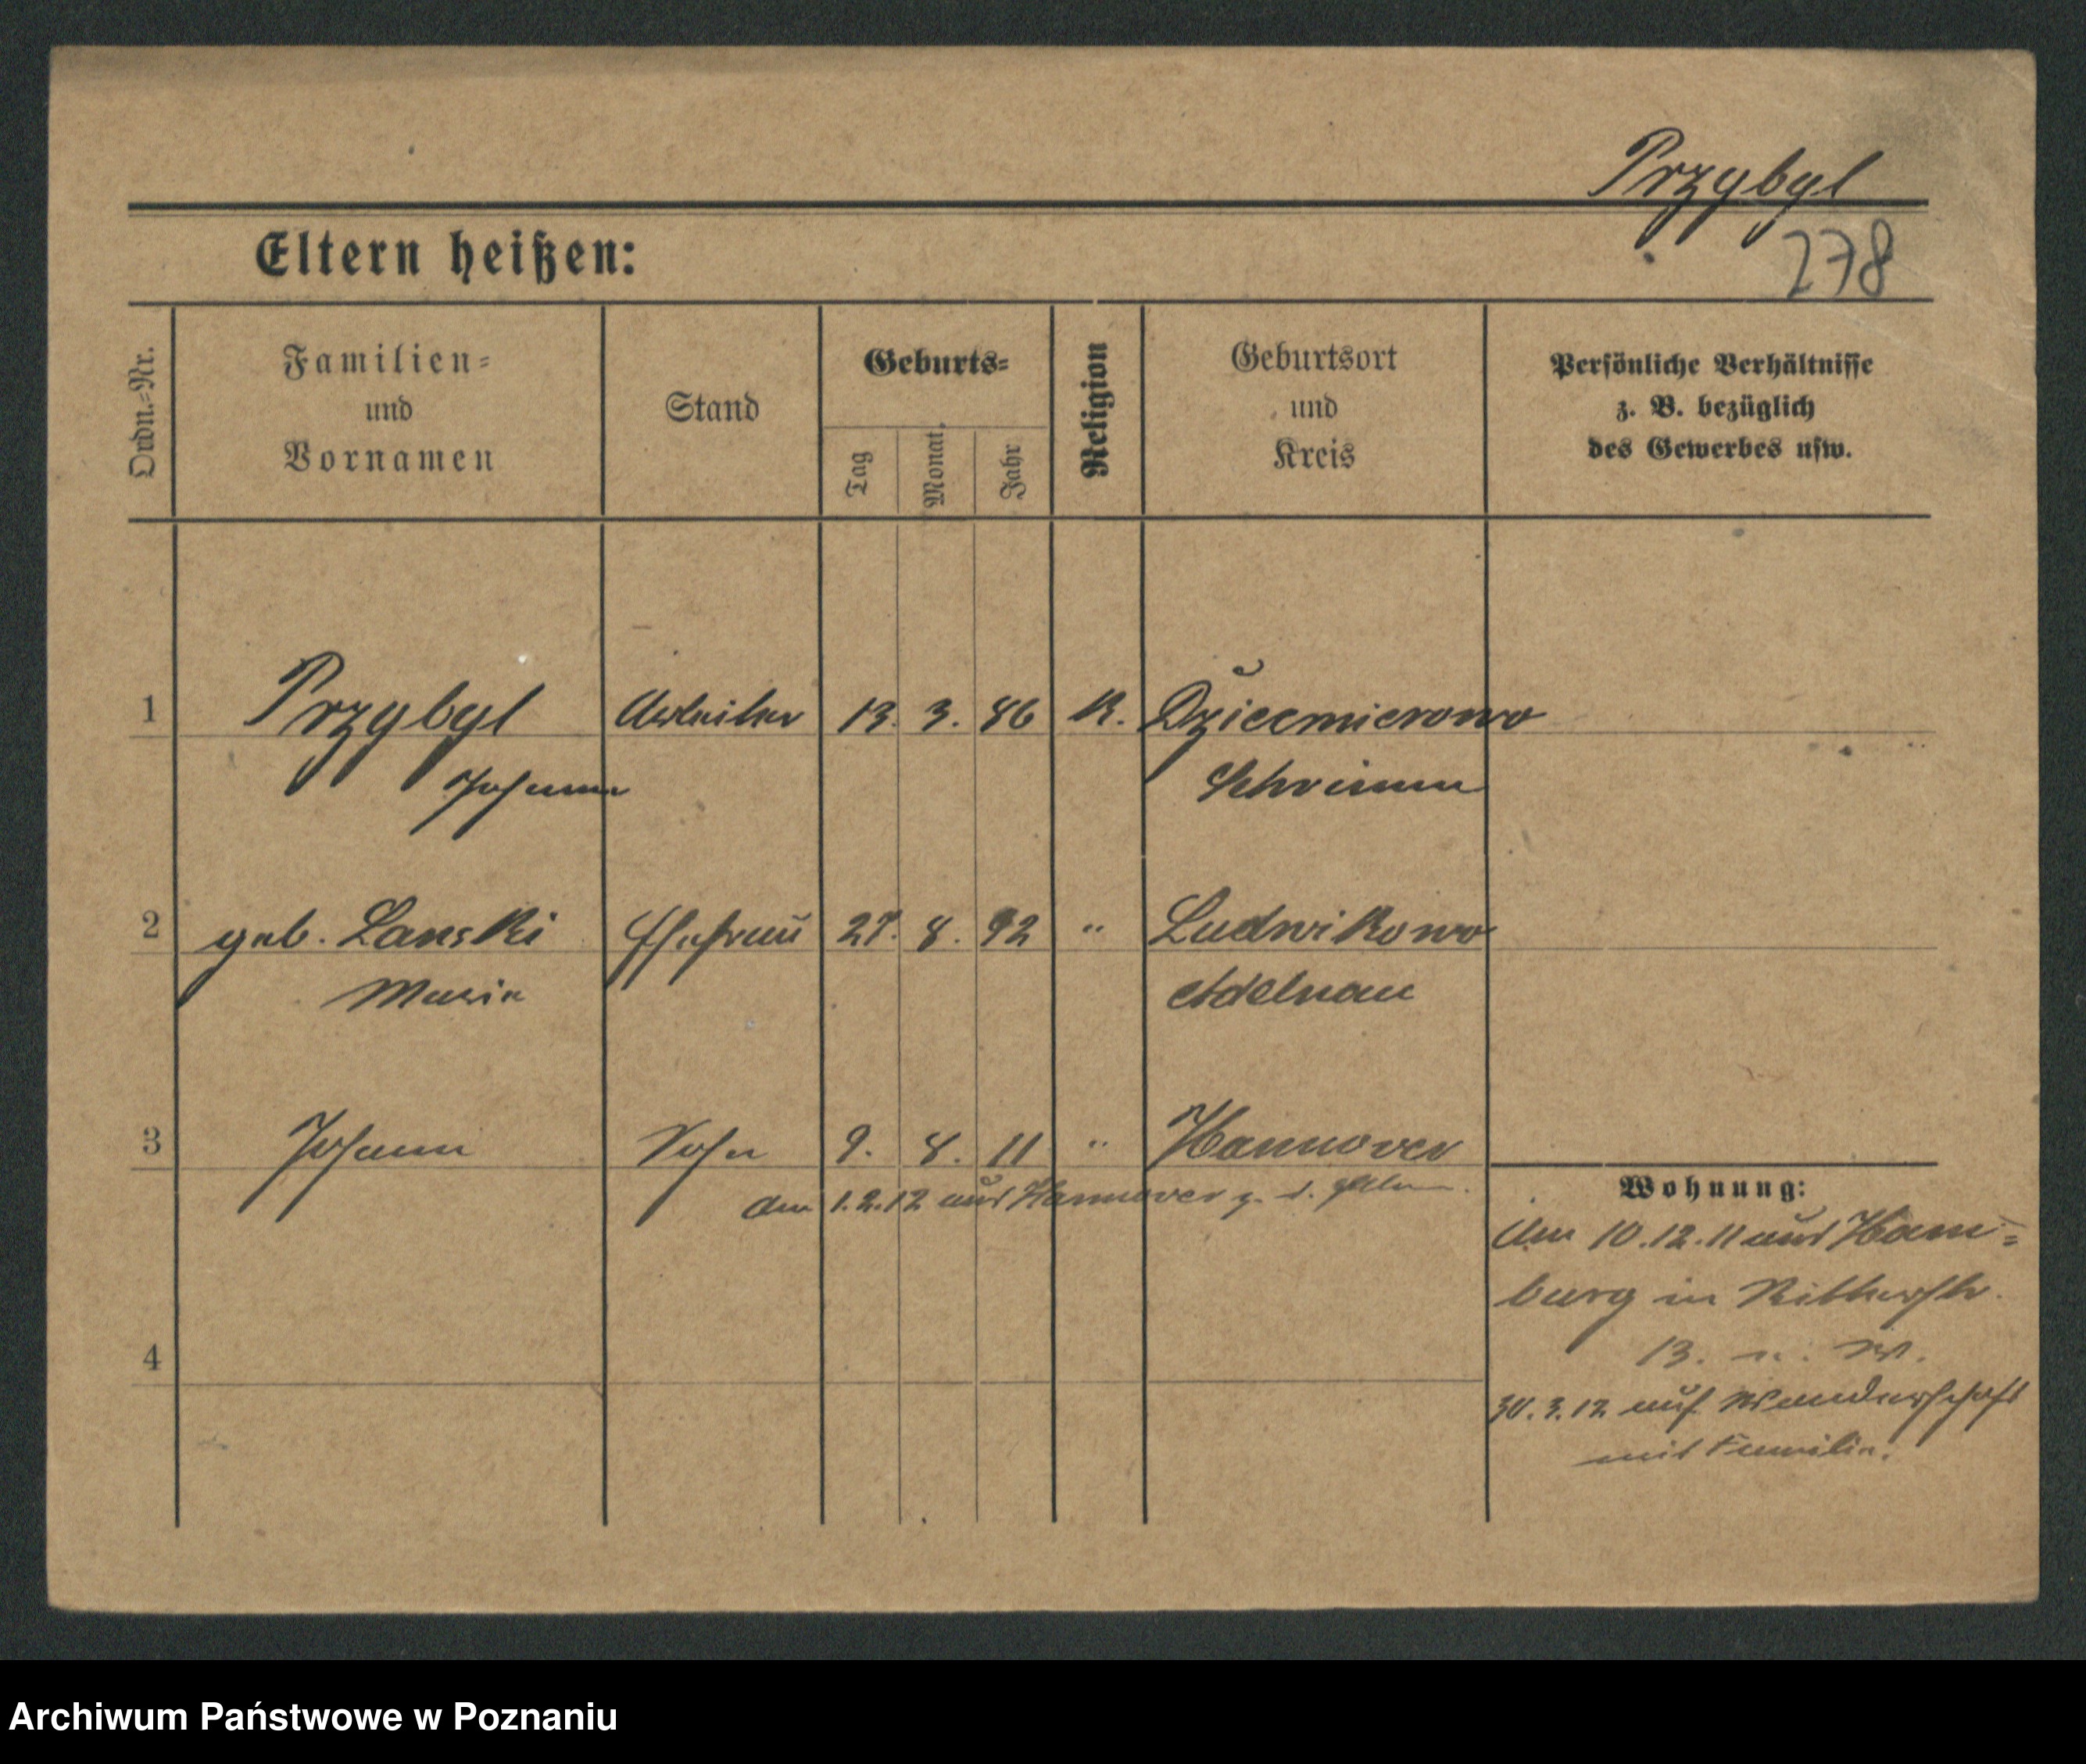 Przybyl
Eltern heißen:
278
Ordn.=Nr.
Familien=
und
Vornamen
Stand
Geburts=
Tag
Monat.
Jahr
Religion
Geburtsort
und
Kreis
Persönliche Verhältnisse
z. B. bezüglich
des Gewerbes usw.
1 Przybyl Arbeiter 13. 3. 86 K. Dziecmierowo
Johann Schrimm
2 geb. Lanski Ehefrau 27. 8. 92 " Ludwikowo
Maria Adelnau
3 Johann Sohn 9. 8. 11 " Hannover
Am 1.2.12 aus Hannover z. d.
Wohnung:
Am 10.12.11 aus Ham=
burg in Ritterstr.
13.
30.3.12 auf Wanderschaft
mit Familie.
4
Archiwum Państwowe w Poznaniu